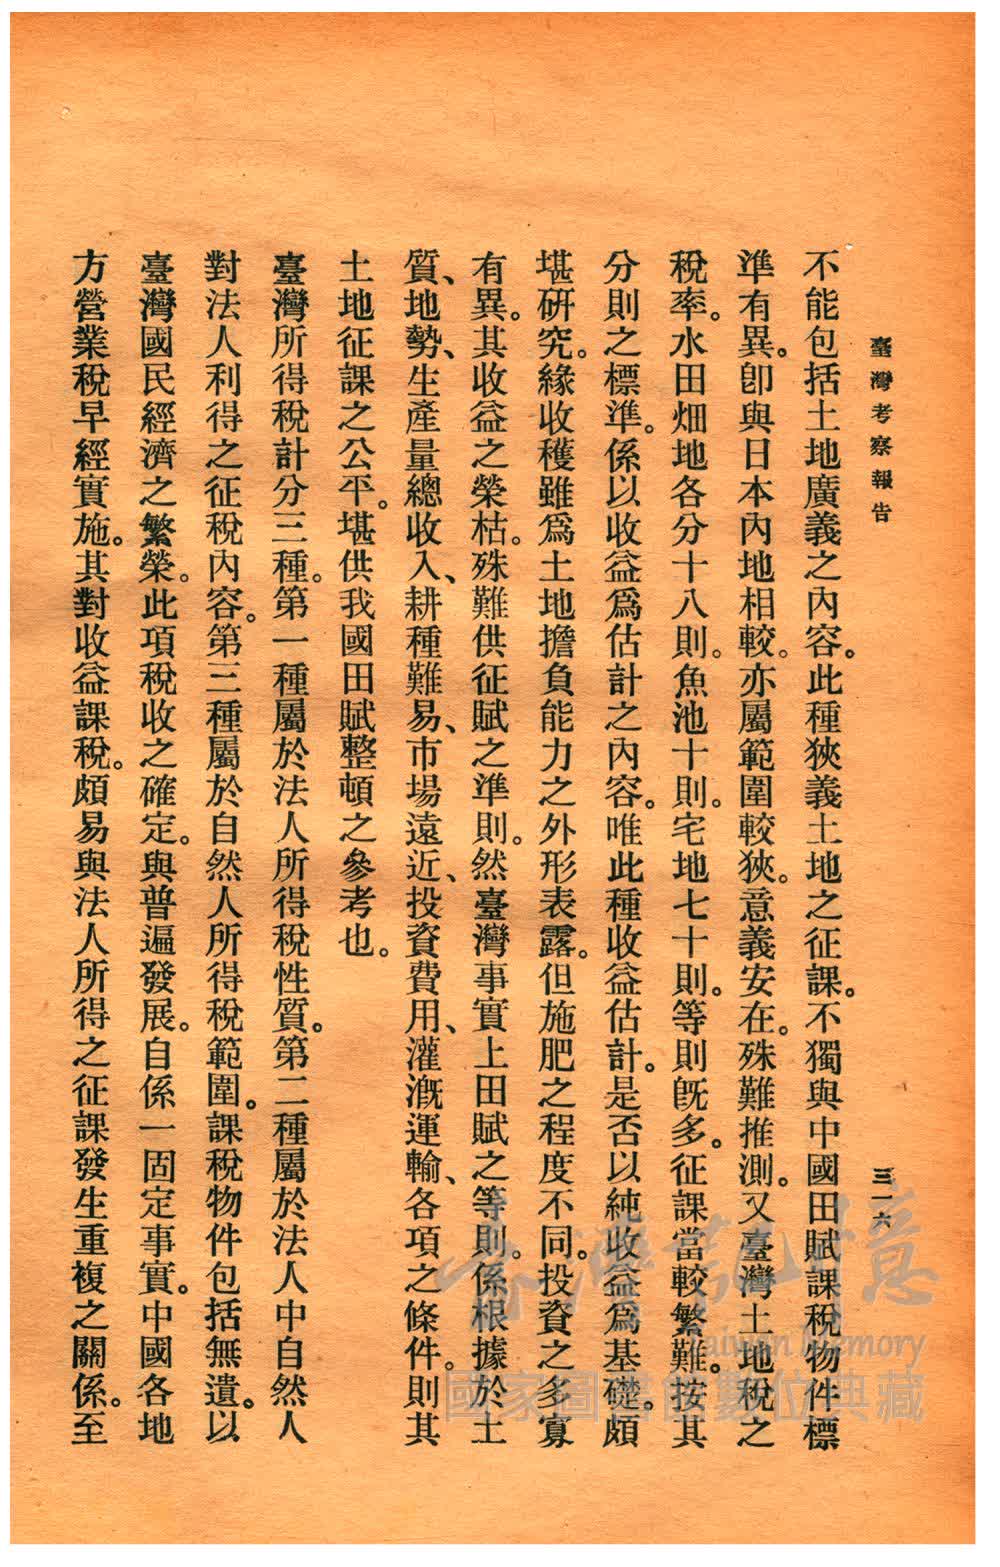 臺灣考察報告
三一六
不能包括土地廣義之內容。此種狹義土地之征課。不獨與中國田賦課稅物件標
準有異。卽與日本內地相較。亦屬範圍較狹。意義安在。殊難推測。又臺灣土地稅之
稅率。水田畑地各分十八則。魚池十則。宅地七十則。等則旣多。征課當較繁難。按其
分則之標準。係以收益爲估計之內容。唯此種收益估計。是否以純收益爲基礎。頗
堪研究。緣收穫雖爲土地擔負能力之外形表露。但施肥之程度不同。投資之多寡
有異。其收益之榮枯。殊難供征賦之準則。然臺灣事實上田賦之等則。係根據於土
質、地勢、生產量總收入、耕種難易、市場遠近、投資費用、灌漑運輸、各項之條件。則其
土地征課之公平。堪供我國田賦整頓之參考也。
臺灣所得稅計分三種。第一種屬於法人所得稅性質。第二種屬於法人中自然人
對法人利得之征稅內容。第三種屬於自然人所得稅範圍。課稅物件包括無遺。以
臺灣國民經濟之繁榮。此項稅收之確定。與普遍發展。自係一固定事實。中國各地
方營業稅早經實施。其對收益課稅。頗易與法人所得之征課發生重複之關係。至
臺灣記憶
Taiwan Memory
國家圖書館數位典藏